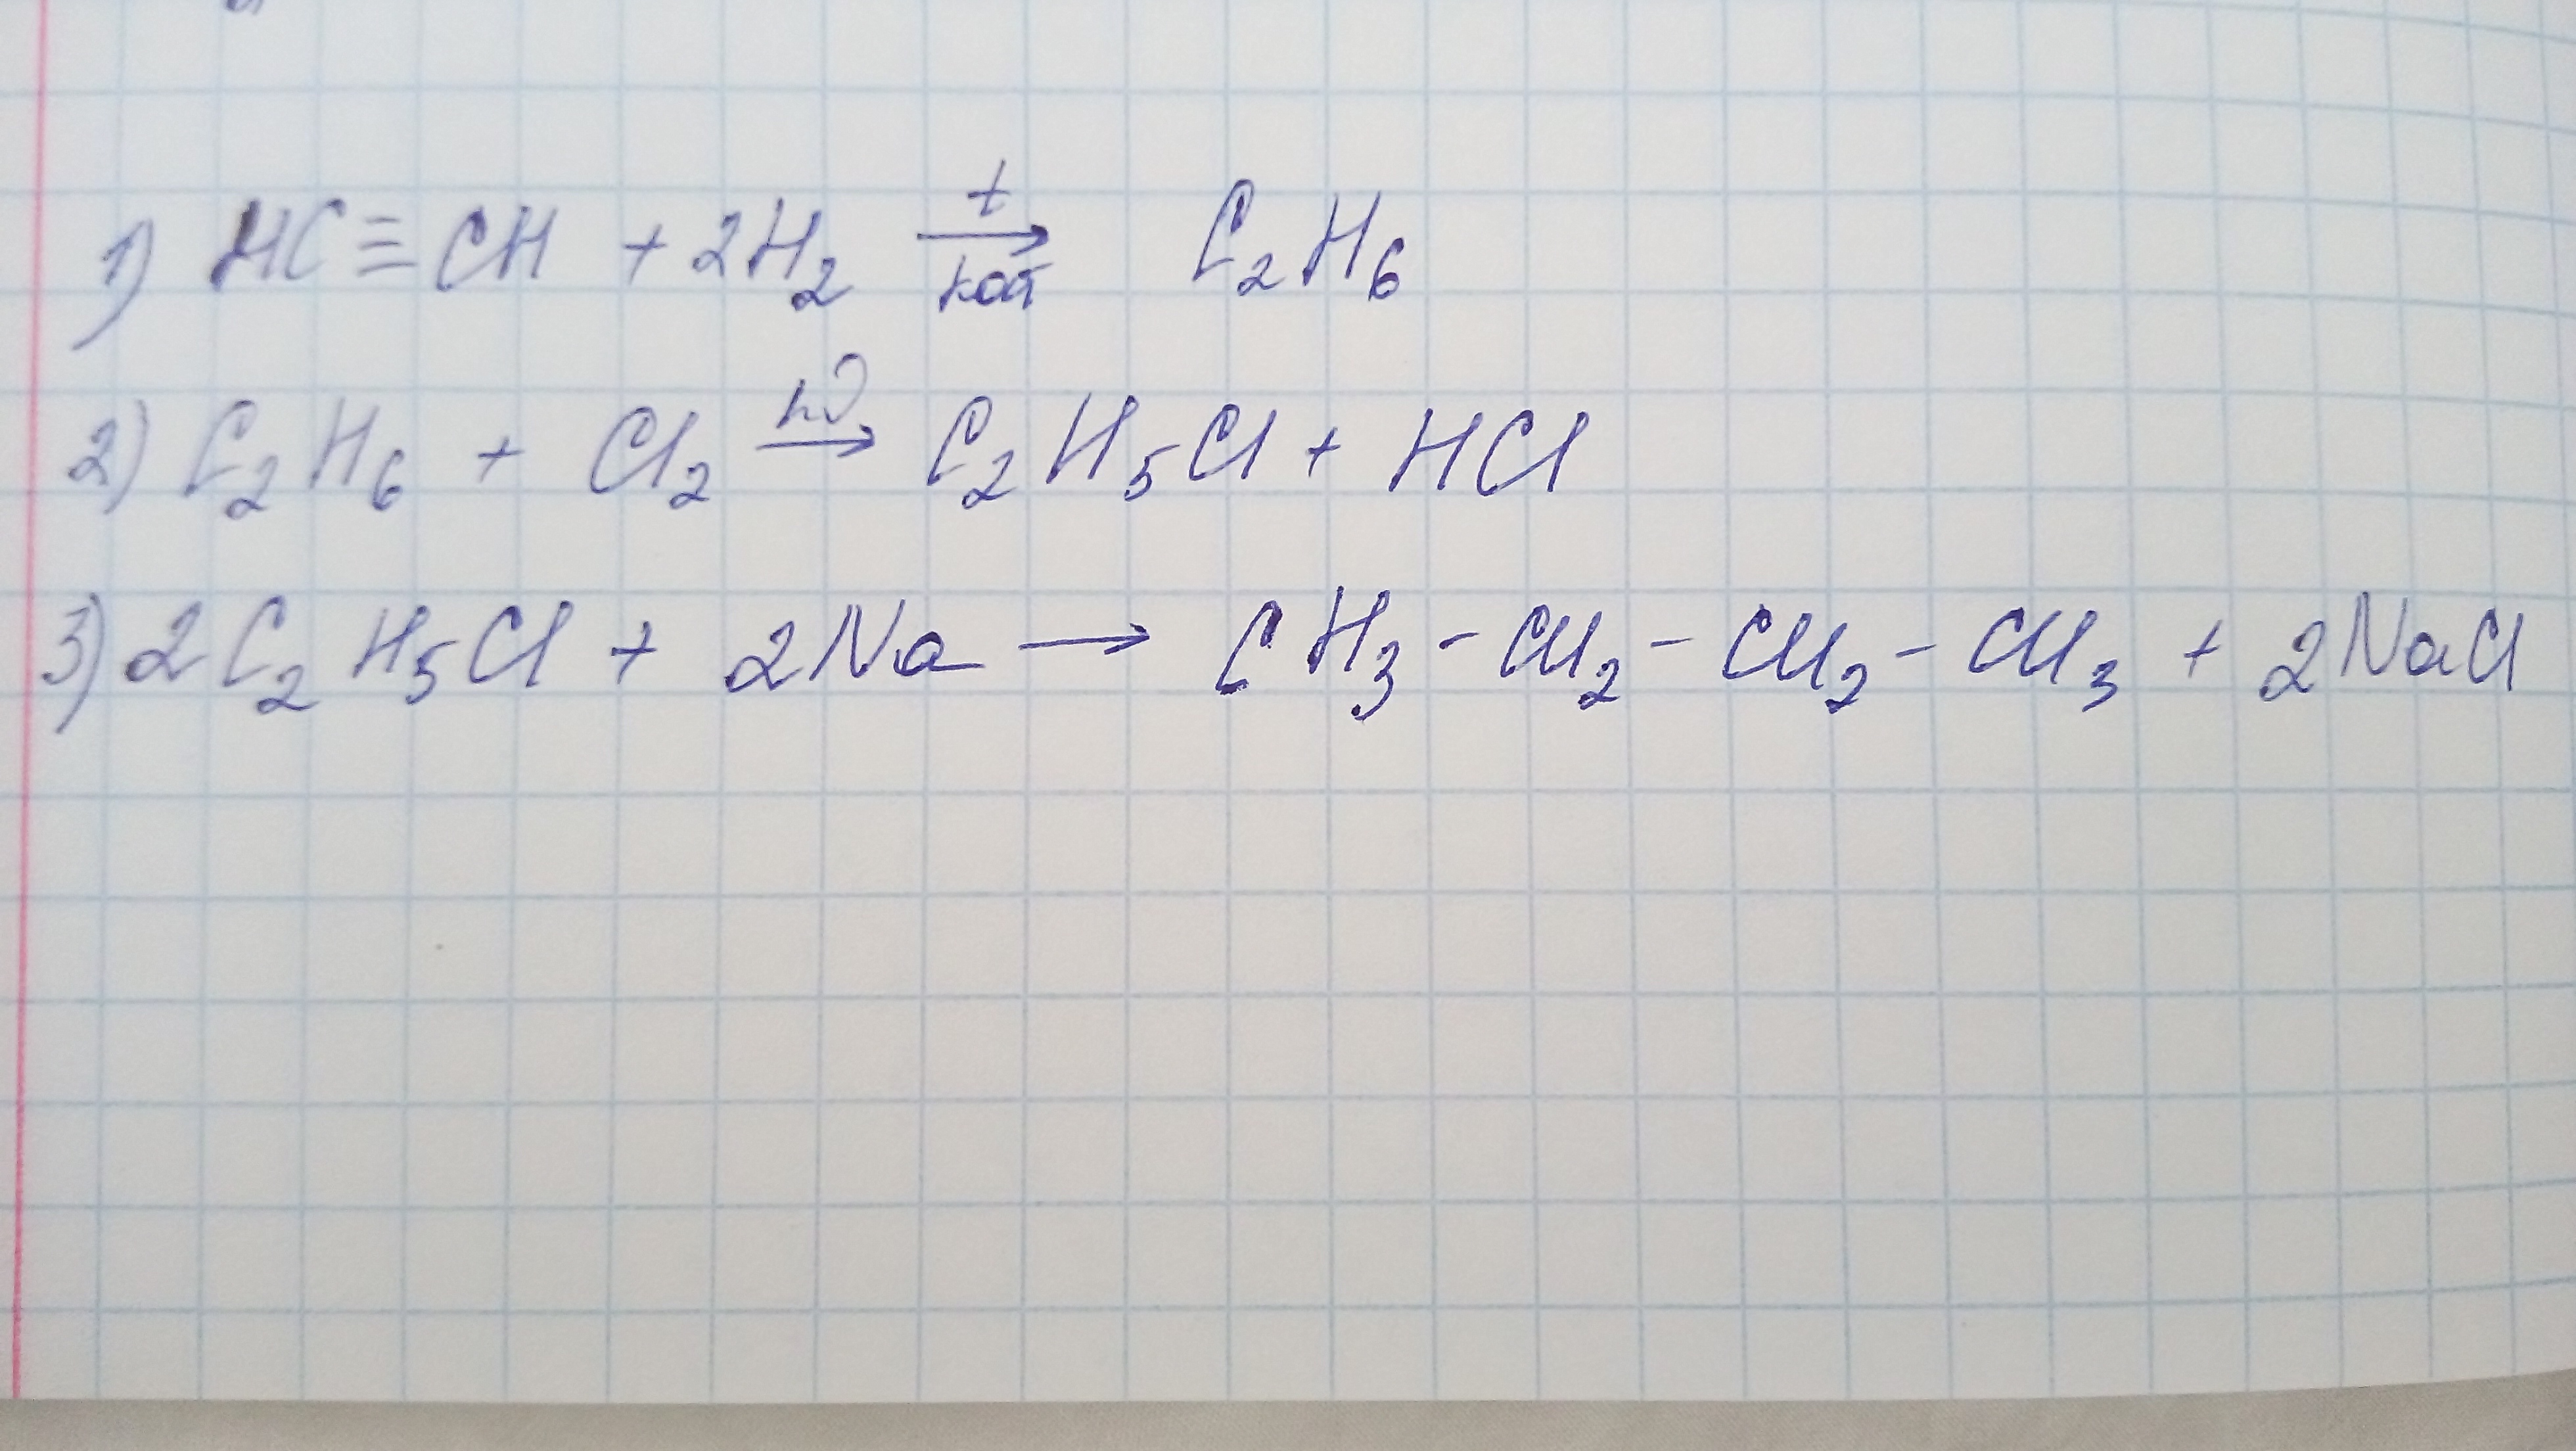 1) HC≡CH + 2H₂ →(t, кат) C₂H₆
2) C₂H₆ + Cl₂ →(hν) C₂H₅Cl + HCl
3) 2C₂H₅Cl + 2Na → CH₃ - CH₂ - CH₂ - CH₃ + 2NaCl